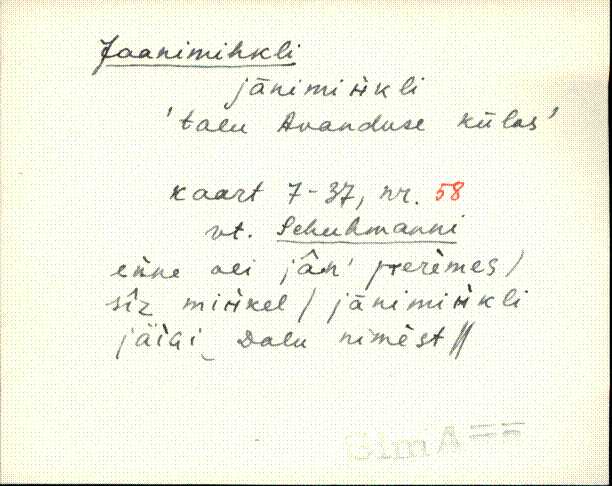 Jaanimihkli
jānimiӥkli
'talu Avanduse külas'
kaart 7-37, nr. 58
vt. Schuhmanni
enne oli jân' peremes /
sîz miӥkel / jānimiӥkli
jäi Dalu nimest //
SimA